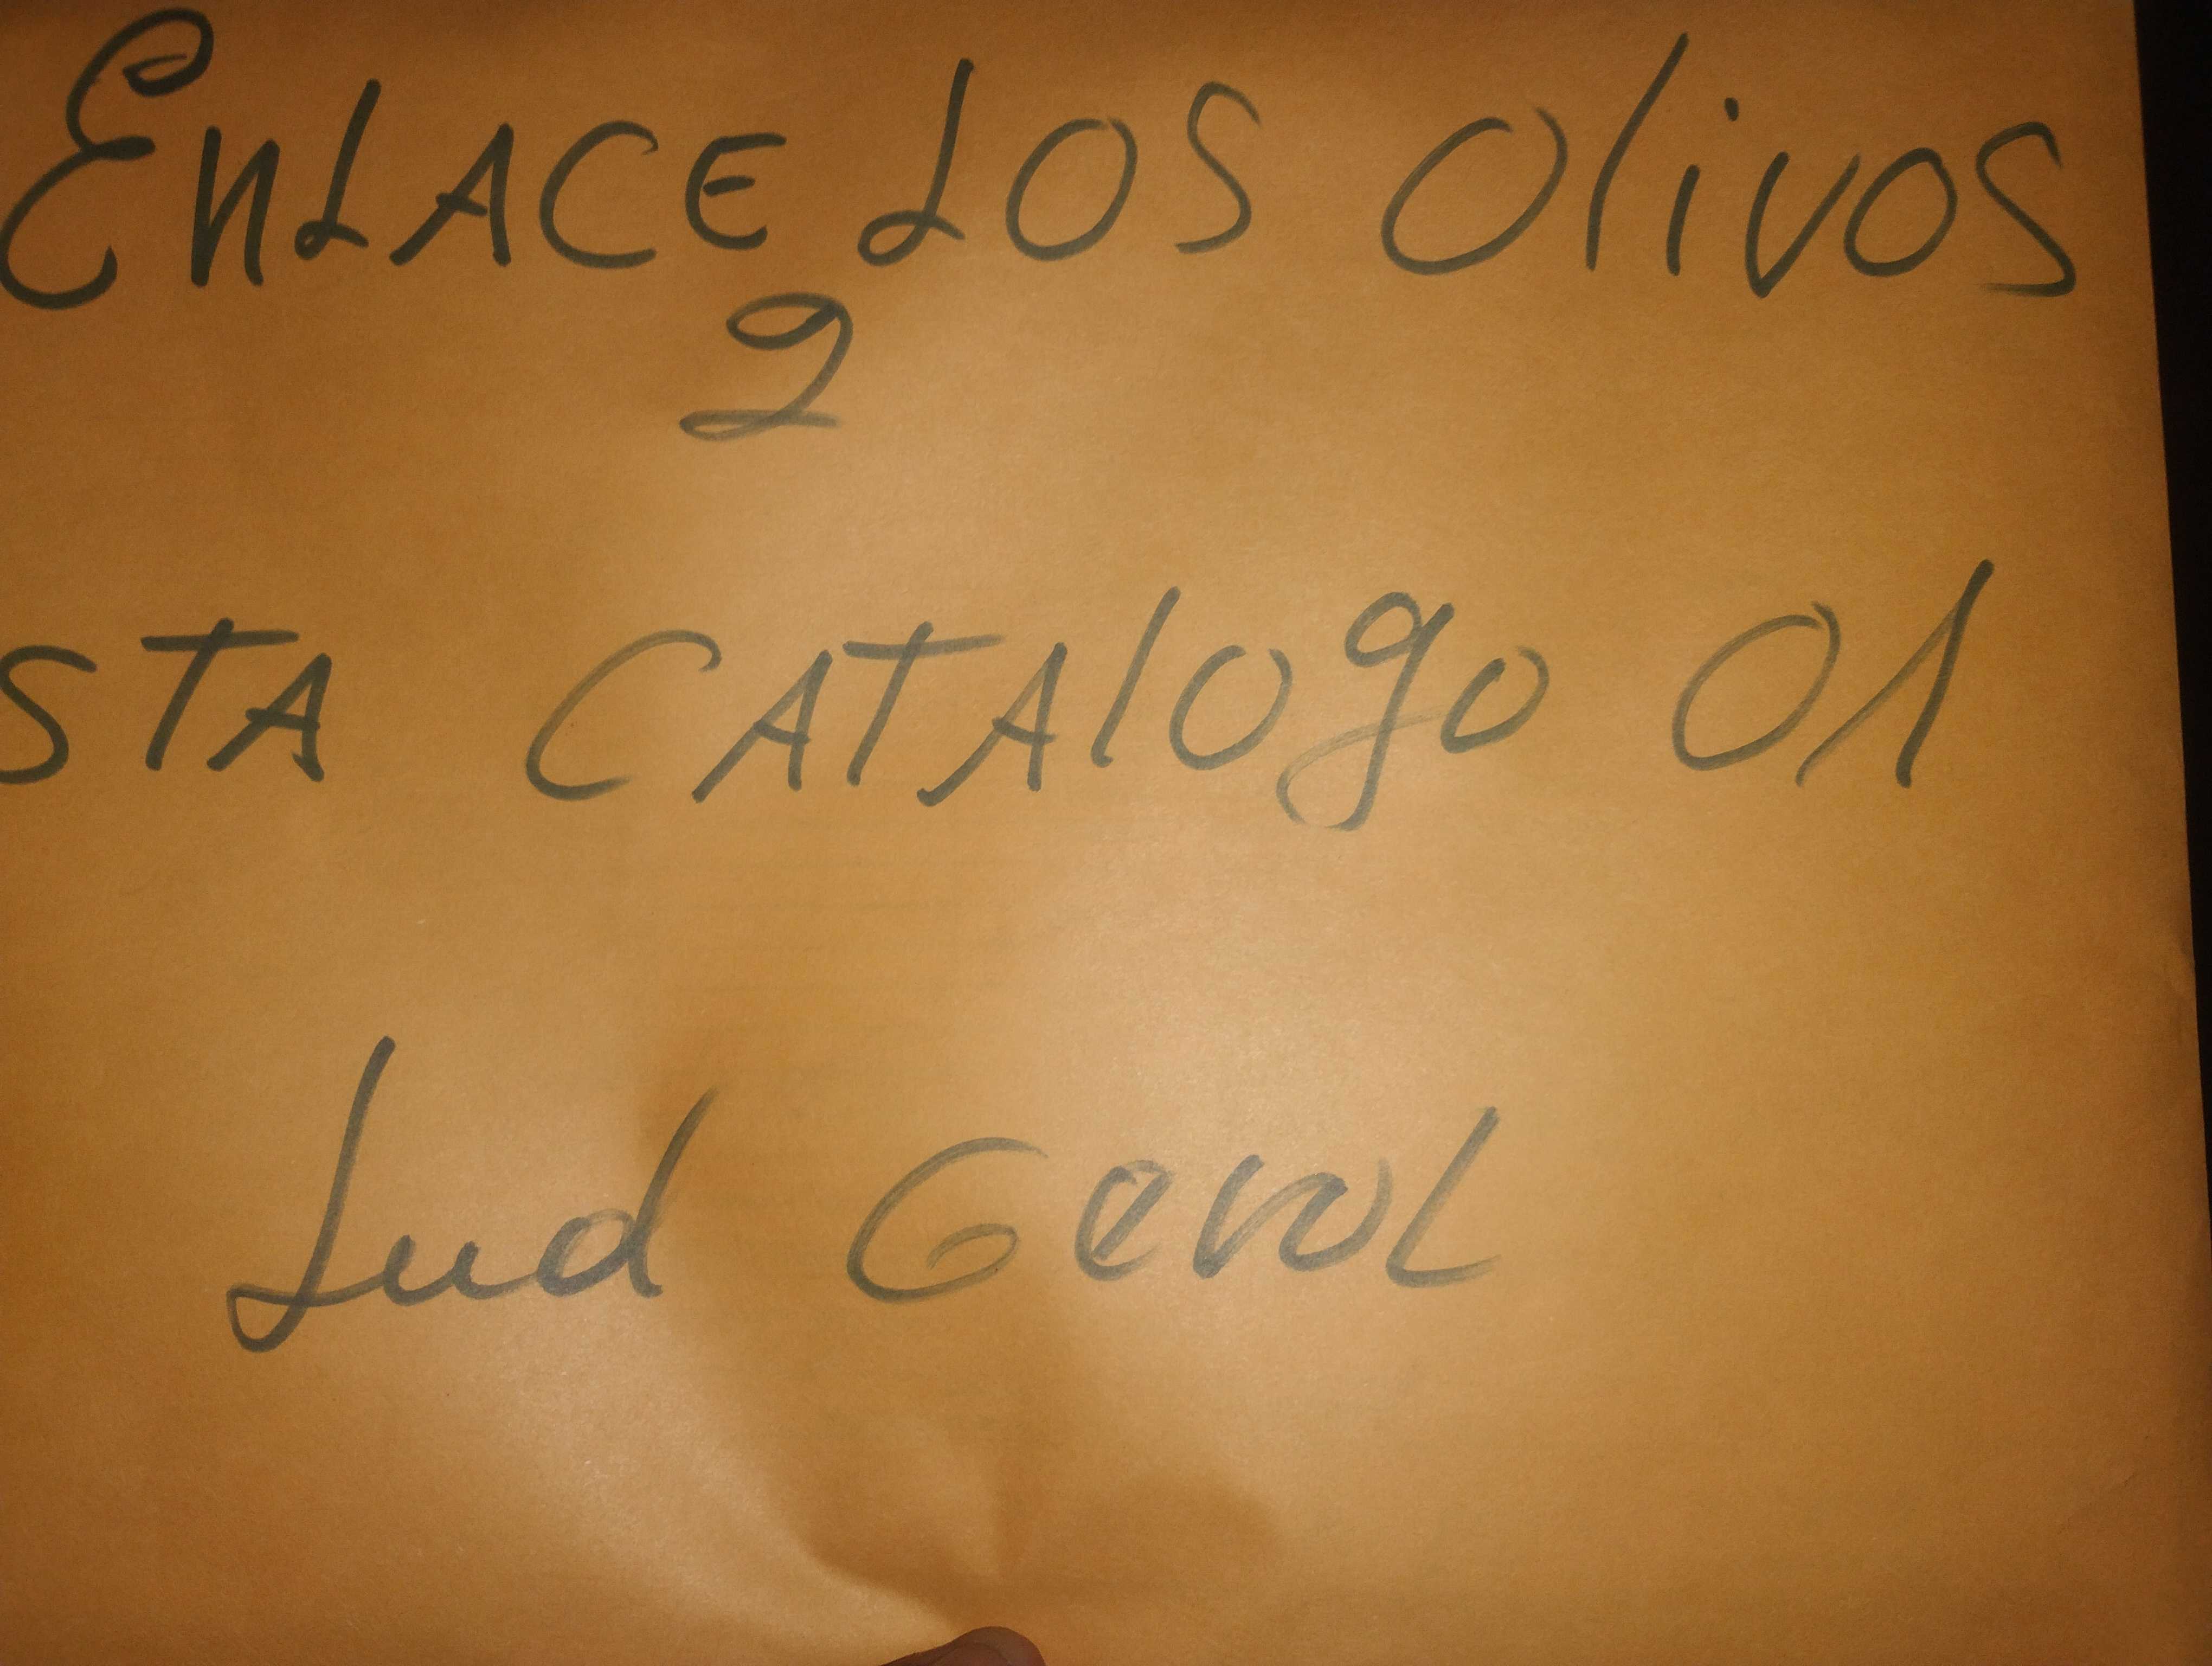 ENLACE LOS Olivos
2
STA CATAlogo 01
Lud Gerol